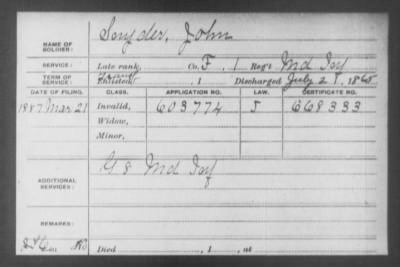 NAME OF SOLDIER: Snyder, John
SERVICE: Late rank, Co. F, 1 Reg't Md Inf
TERM OF SERVICE: Enlisted , 1 Discharged July 2 , 1865
DATE OF FILING. CLASS. APPLICATION NO. LAW. CERTIFICATE NO.
1887 Mar 21 Invalid, 603774 J 668333
Widow,
Minor,
ADDITIONAL SERVICES: G 8 Md Inf
REMARKS:
Died , 1 , at